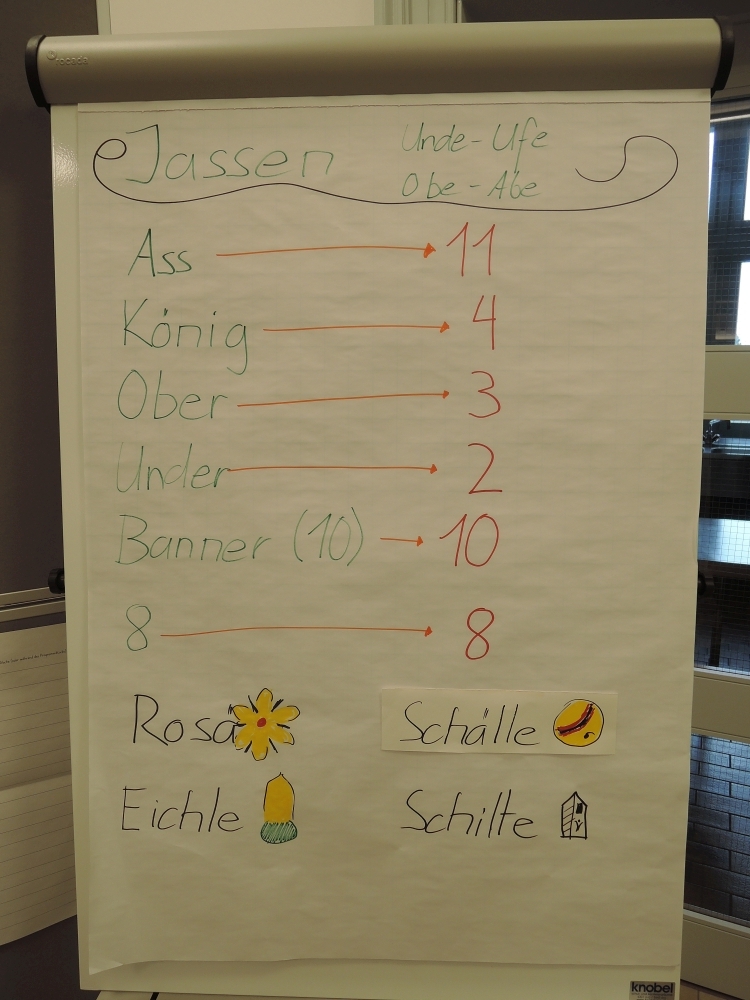 Jassen
Unde-Ufe
Obe-Abe
Ass → 11
König → 4
Ober → 3
Under → 2
Banner (10) → 10
8 → 8
Rosa
Schälle
Eichle
Schilte
knobel